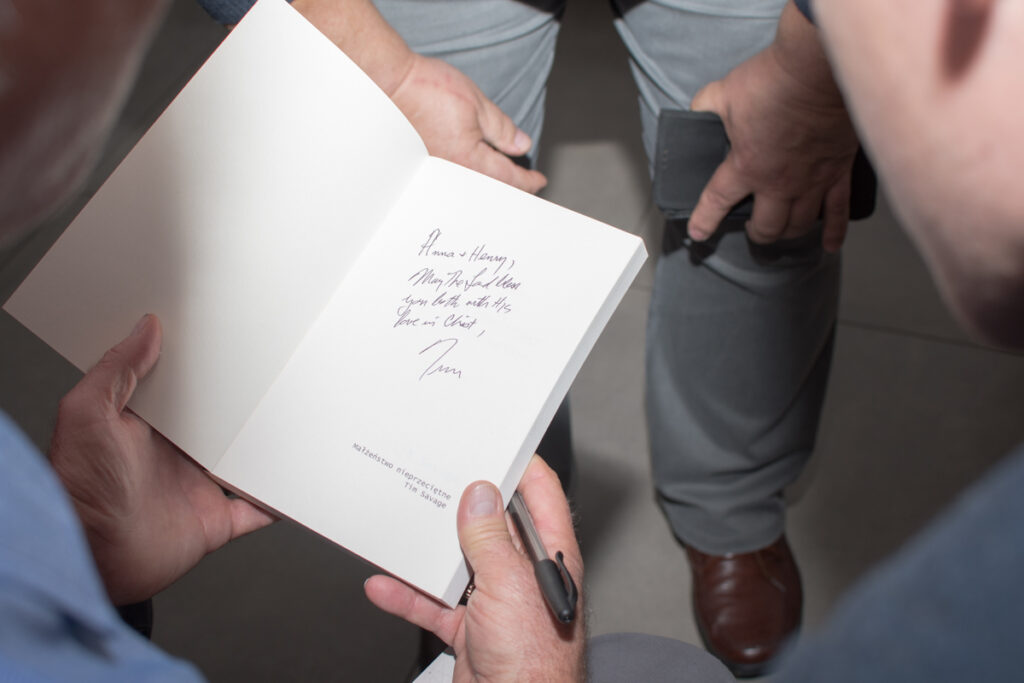 Anna + Henry,
May The Lord bless
you both with His
love in Christ,
Tim
Małżeństwo nieprzeciętne
Tim Savage